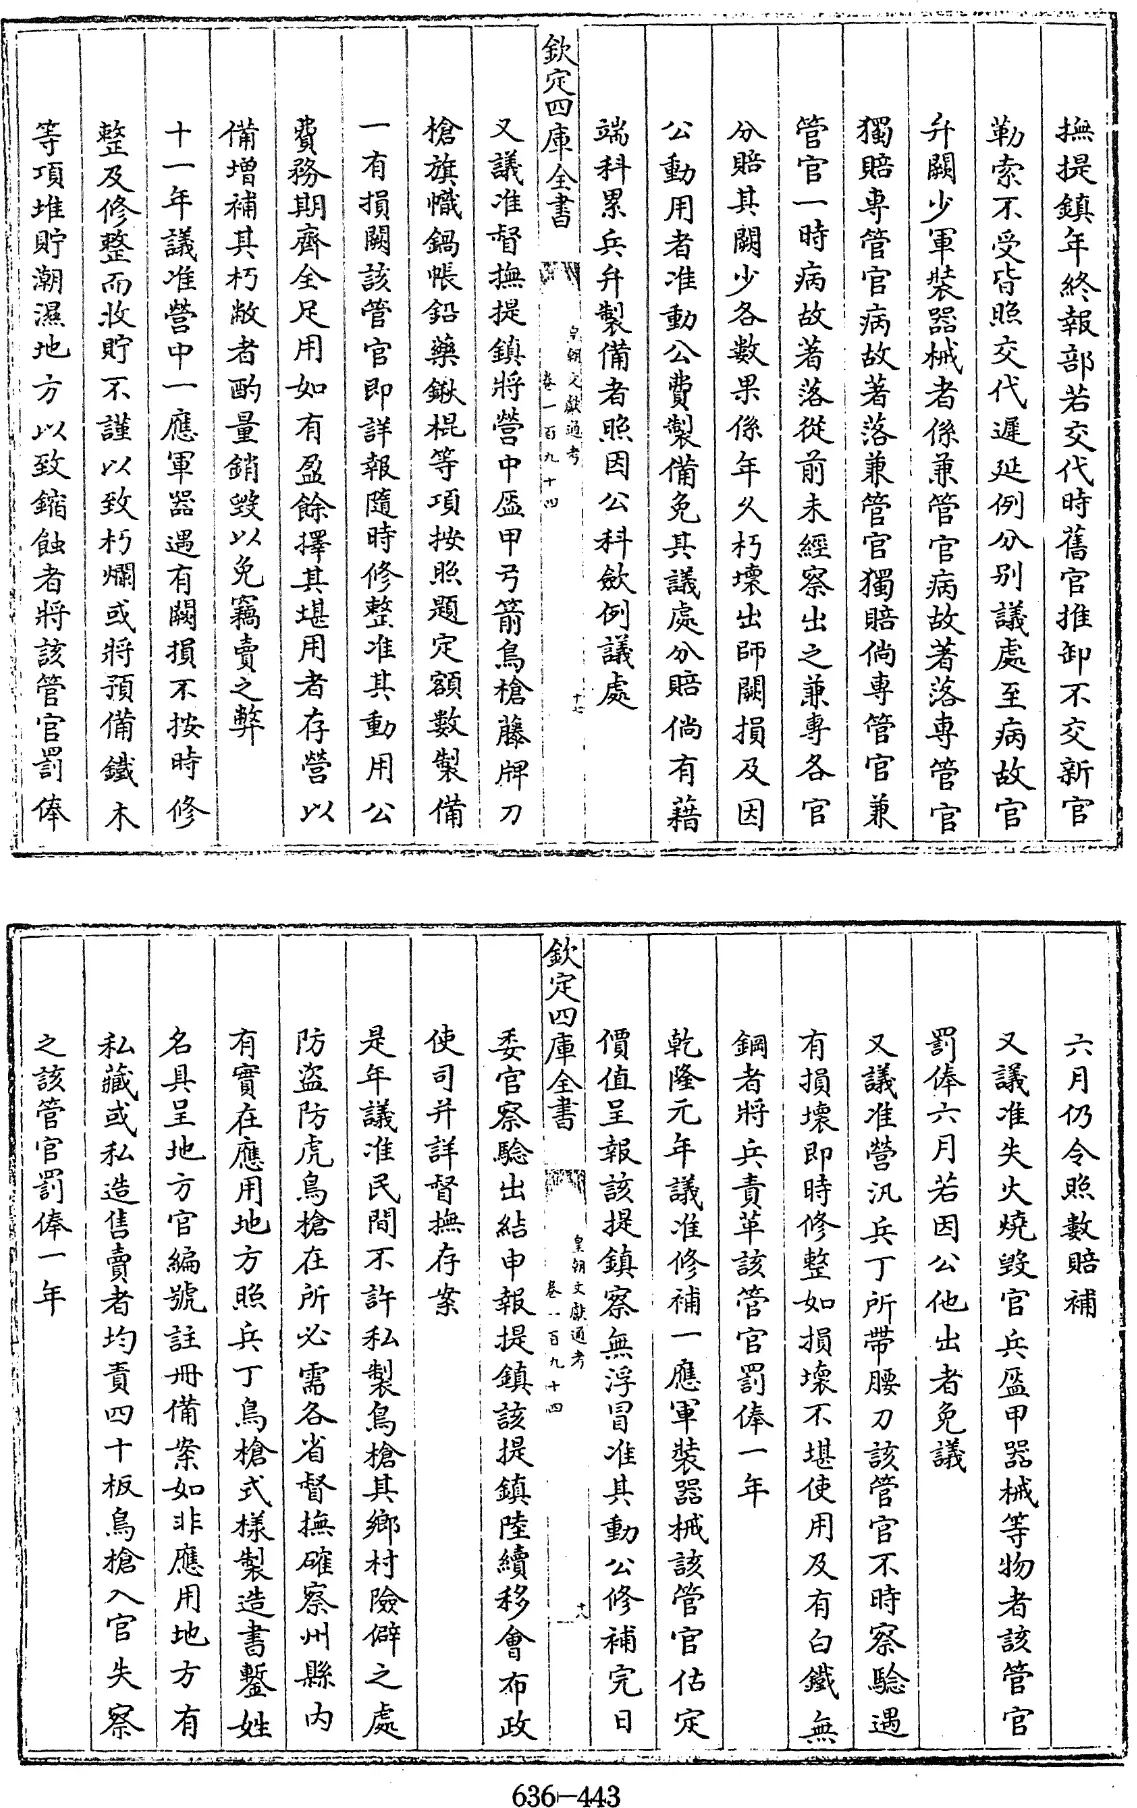 撫提鎮年終報部若交代時舊官推卸不交新官
勒索不受皆照交代遲延例分別議處至病故官
弁闕少軍裝器械者係兼管官病故著落專管官
獨賠專管官病故著落兼管官獨賠倘專管官兼
管官一時病故著落從前未經察出之兼專各官
分賠其闕少各數果係年久朽壞出師闕損及因
公動用者准動公費製備免其議處分賠倘有藉
端科累兵弁製備者照因公科斂例議處
欽定四庫全書
皇朝文獻通考
卷一百九十四
十七
又議准督撫提鎮將營中盔甲弓箭鳥槍藤牌刀
槍旗幟鍋帳鉛藥鍬棍等項按照題定額數製備
一有損闕該管官即詳報隨時修整准其動用公
費務期齊全足用如有盈餘擇其堪用者存營以
備增補其朽敝者酌量銷毀以免竊賣之弊
十一年議准營中一應軍器遇有闕損不按時修
整及修整而收貯不謹以致朽爛或將預備鐵木
等項堆貯潮濕地方以致鏥蝕者將該管官罰俸
六月仍令照數賠補
又議准失火燒毀官兵盔甲器械等物者該管官
罰俸六月若因公他出者免議
又議准營汛兵丁所帶腰刀該管官不時察驗遇
有損壞即時修整如損壞不堪使用及有白鐵無
鋼者將兵責革該管官罰俸一年
乾隆元年議准修補一應軍裝器械該管官估定
價值呈報該提鎮察無浮冒准其動公修補完日
欽定四庫全書
皇朝文獻通考
卷一百九十四
十八
委官察驗出結申報提鎮該提鎮陸續移會布政
使司并詳督撫存案
是年議准民間不許私製鳥槍其鄉村險僻之處
防盜防虎鳥槍在所必需各省督撫確察州縣內
有實在應用地方照兵丁鳥槍式樣製造書鏨姓
名具呈地方官編號註冊備案如非應用地方有
私藏或私造售賣者均責四十板鳥槍入官失察
之該管官罰俸一年
636-443